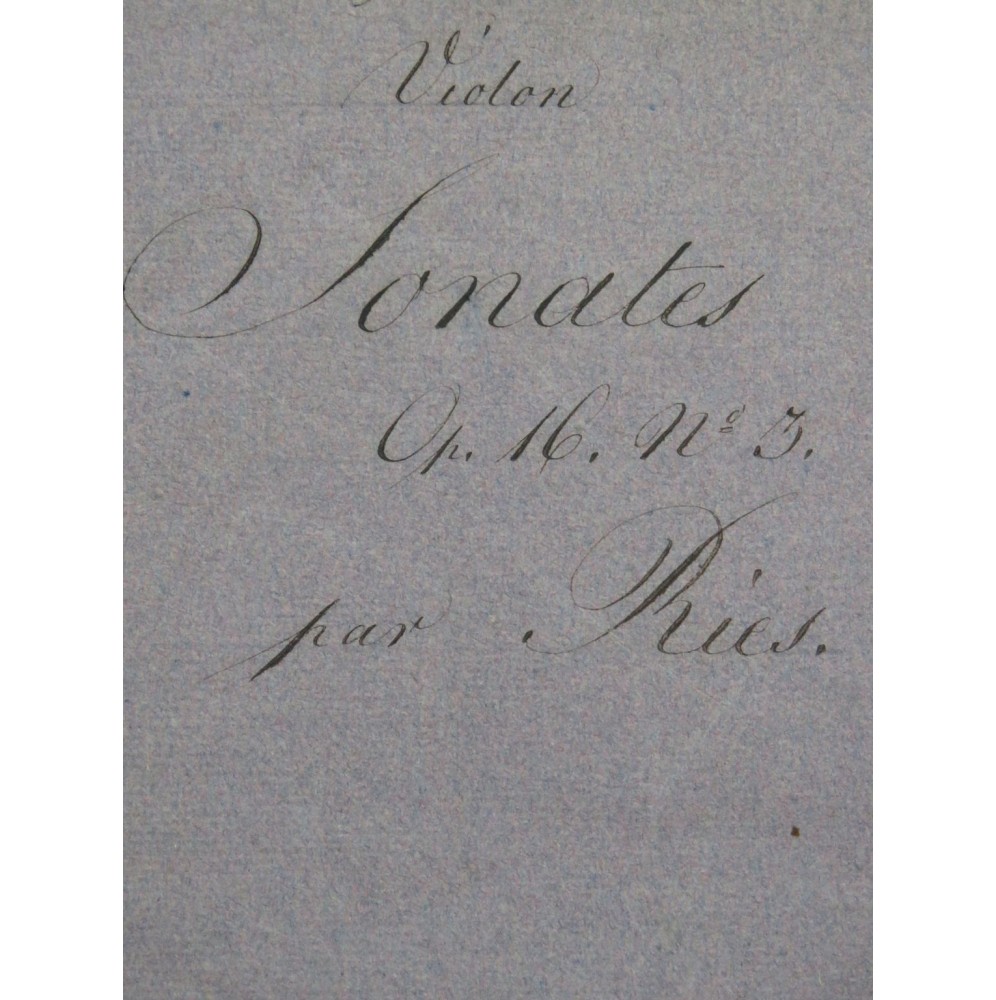 Violon
Sonates
Op. 16. Nº 3.
par Ries.